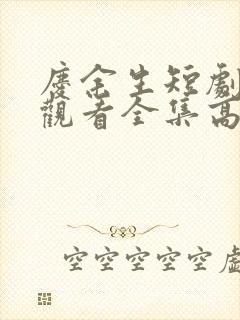 慶余生短劇
觀看全集高
空空空空空虛